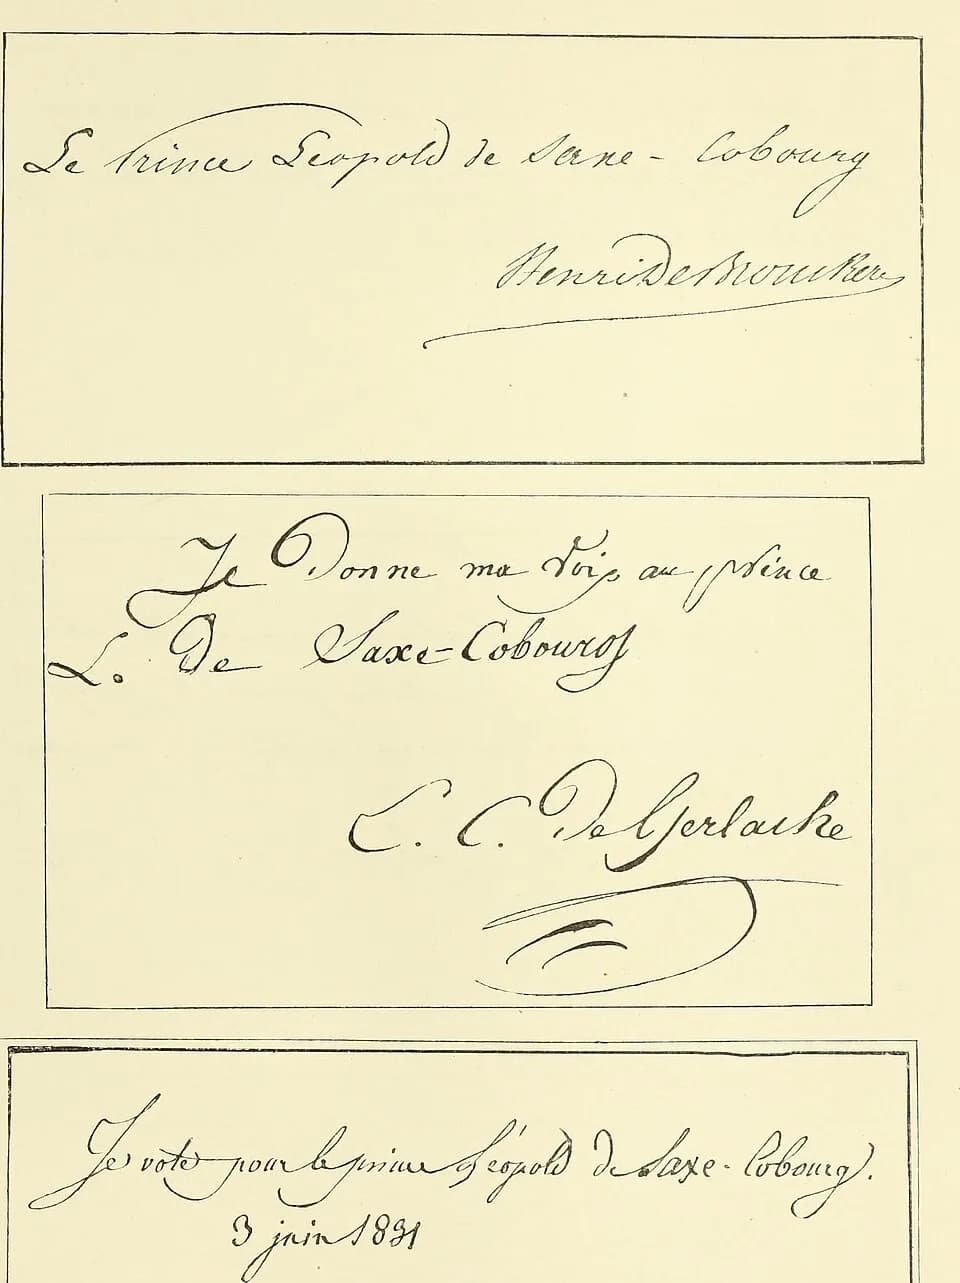 Le Prince Léopold de Saxe - Cobourg
Henri De Brouckere
Je Donne ma voix au prince
L. De Saxe-Cobourg
E. C. De Gerlache
Je vote pour le prince Léopold de Saxe-Cobourg.
3 juin 1831